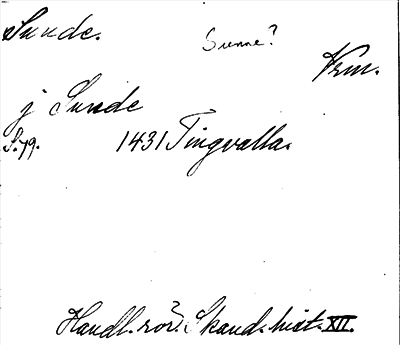 Sunde.
Sunne?
Vrm.
j Sunde
S. 79.
1431 Tingvalla.
Handl. rör. Skand. hist. XII.